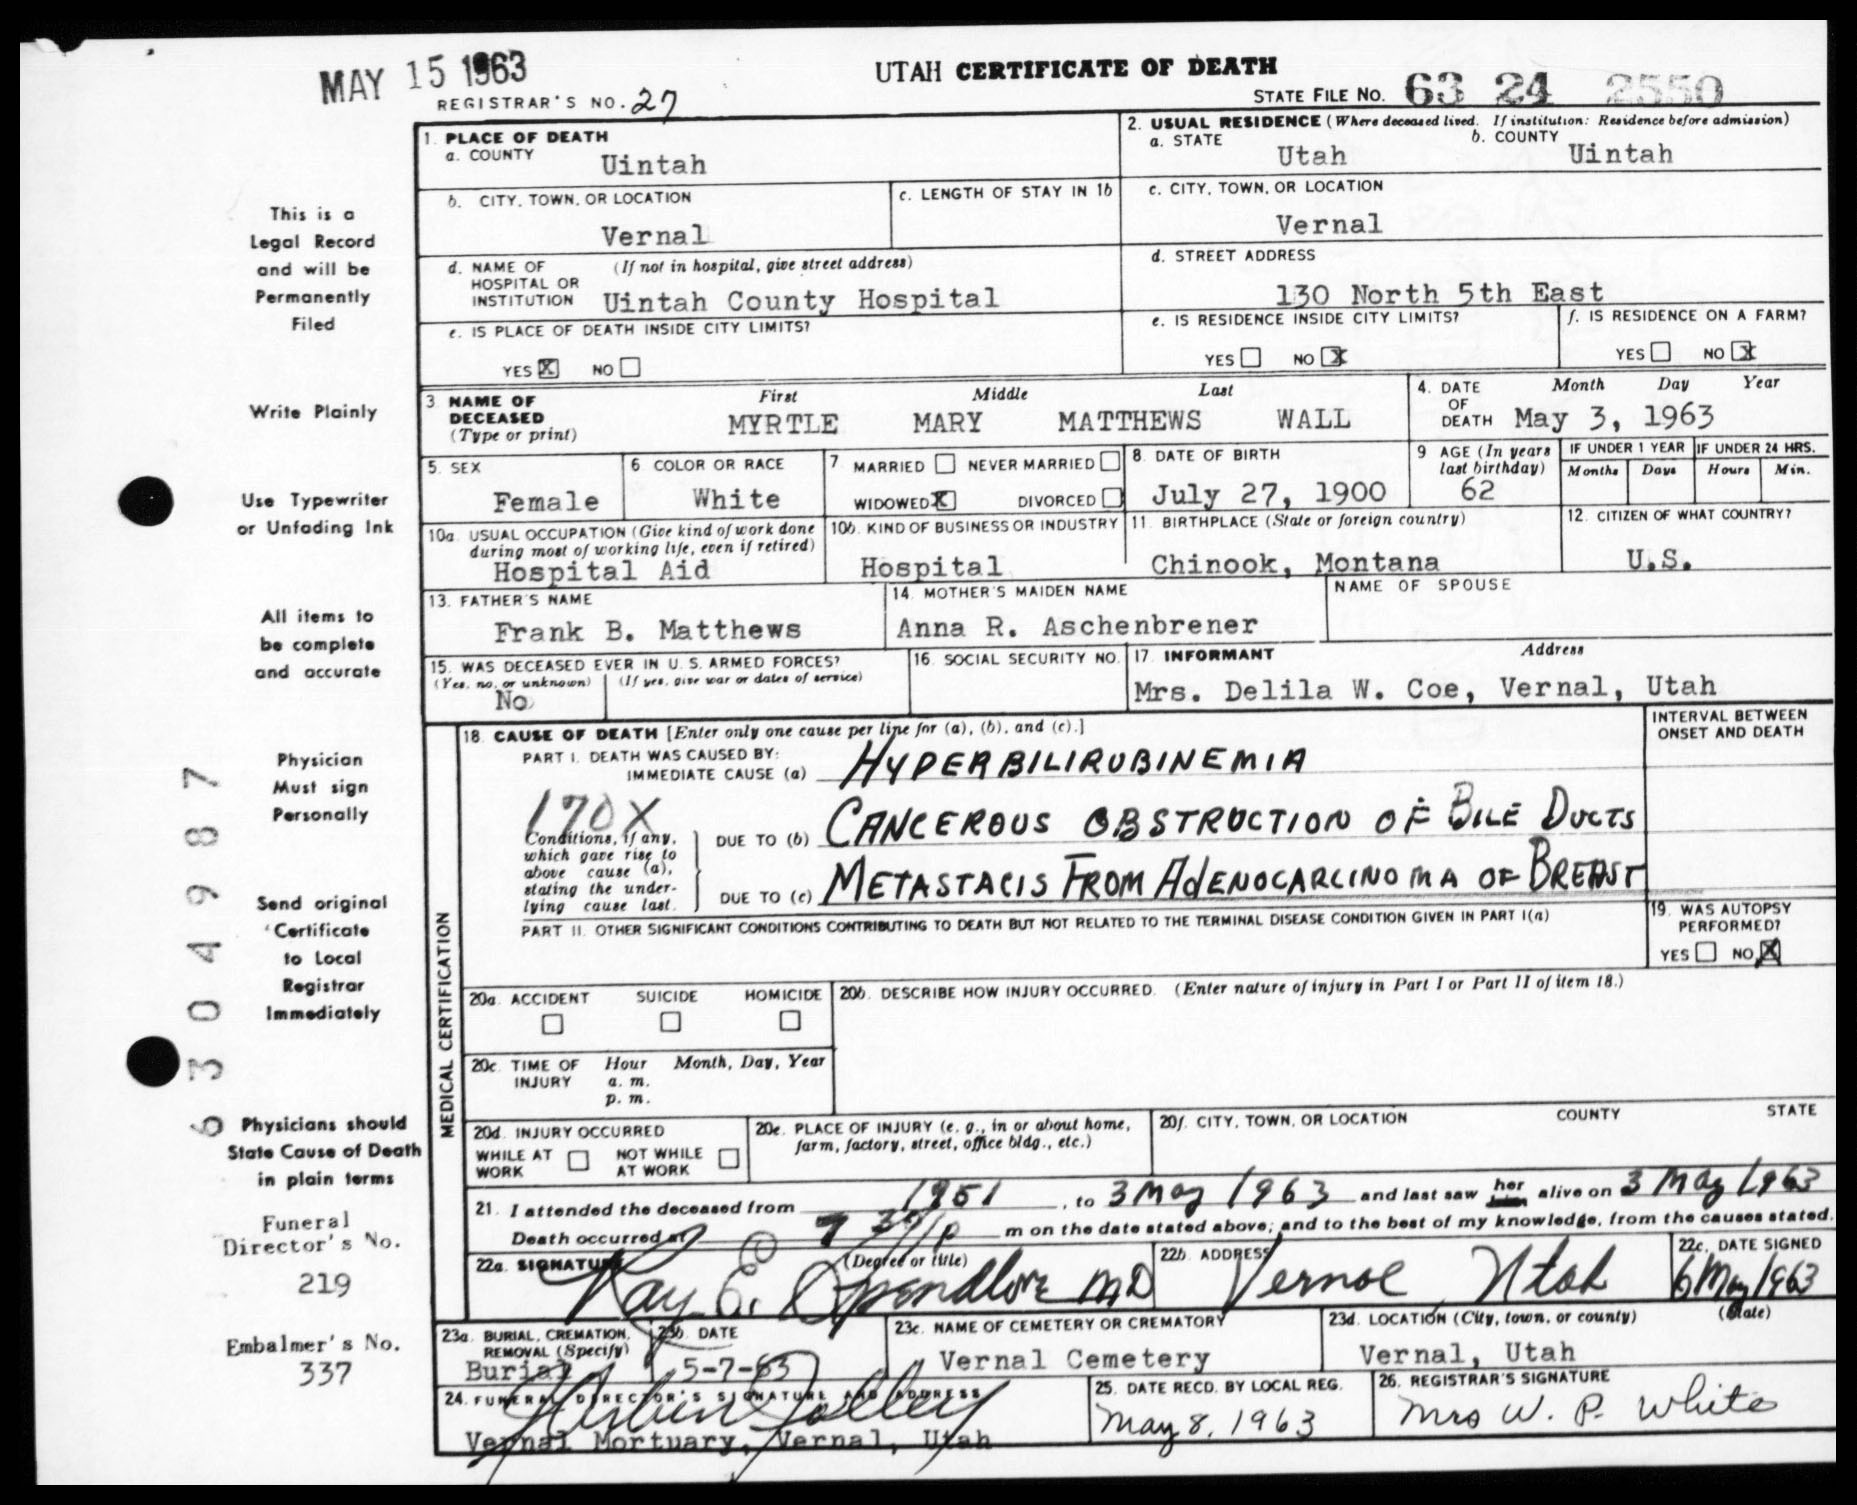 MAY 15 1963
UTAH CERTIFICATE OF DEATH
REGISTRAR'S NO. 27
STATE FILE NO. 63 24 2550
This is a
Legal Record
and will be
Permanently
Filed
Write Plainly
Use Typewriter
or Unfading Ink
All items to
be complete
and accurate
Physician
Must sign
Personally
Send original
Certificate
to Local
Registrar
Immediately
Physicians should
State Cause of Death
in plain terms
Funeral
Director's No.
219
Embalmer's No.
337
6304987
1. PLACE OF DEATH
a. COUNTY
Uintah
b. CITY, TOWN, OR LOCATION
Vernal
c. LENGTH OF STAY IN 1b
d. NAME OF (If not in hospital, give street address)
HOSPITAL OR
INSTITUTION Uintah County Hospital
e. IS PLACE OF DEATH INSIDE CITY LIMITS?
YES X NO
2. USUAL RESIDENCE (Where deceased lived. If institution: Residence before admission)
a. STATE Utah b. COUNTY Uintah
c. CITY, TOWN, OR LOCATION
Vernal
d. STREET ADDRESS
130 North 5th East
e. IS RESIDENCE INSIDE CITY LIMITS?
YES NO X
f. IS RESIDENCE ON A FARM?
YES NO X
3. NAME OF DECEASED
(Type or print)
First Middle Last
MYRTLE MARY MATTHEWS WALL
4. DATE OF DEATH
Month Day Year
May 3, 1963
5. SEX
Female
6. COLOR OR RACE
White
7. MARRIED NEVER MARRIED
WIDOWED X DIVORCED
8. DATE OF BIRTH
July 27, 1900
9 AGE (In years
last birthday)
62
IF UNDER 1 YEAR
Months Days
IF UNDER 24 HRS.
Hours Min.
10a. USUAL OCCUPATION (Give kind of work done
during most of working life, even if retired)
Hospital Aid
10b. KIND OF BUSINESS OR INDUSTRY
Hospital
11. BIRTHPLACE (State or foreign country)
Chinook, Montana
12. CITIZEN OF WHAT COUNTRY?
U.S.
13. FATHER'S NAME
Frank B. Matthews
14. MOTHER'S MAIDEN NAME
Anna R. Aschenbrener
NAME OF SPOUSE
15. WAS DECEASED EVER IN U. S. ARMED FORCES?
(Yes, no, or unknown) (If yes, give war or dates of service)
No
16. SOCIAL SECURITY NO.
17. INFORMANT Address
Mrs. Delila W. Coe, Vernal, Utah
MEDICAL CERTIFICATION
18. CAUSE OF DEATH [Enter only one cause per line for (a), (b), and (c).]
INTERVAL BETWEEN
ONSET AND DEATH
PART I. DEATH WAS CAUSED BY:
IMMEDIATE CAUSE (a) HYPERBILIRUBINEMIA
170X
Conditions, if any,
which gave rise to
above cause (a),
stating the under-
lying cause last.
DUE TO (b) CANCEROUS OBSTRUCTION OF BILE DUCTS
DUE TO (c) METASTACIS FROM ADENOCARCINOMA OF BREAST
PART II. OTHER SIGNIFICANT CONDITIONS CONTRIBUTING TO DEATH BUT NOT RELATED TO THE TERMINAL DISEASE CONDITION GIVEN IN PART I(a)
19. WAS AUTOPSY
PERFORMED?
YES NO X
20a. ACCIDENT SUICIDE HOMICIDE
20b. DESCRIBE HOW INJURY OCCURRED. (Enter nature of injury in Part I or Part II of item 18.)
20c. TIME OF INJURY
Hour Month, Day, Year
a. m.
p. m.
20d. INJURY OCCURRED
WHILE AT WORK NOT WHILE AT WORK
20e. PLACE OF INJURY (e. g., in or about home,
farm, factory, street, office bldg., etc.)
20f. CITY, TOWN, OR LOCATION COUNTY STATE
21. I attended the deceased from 1951, to 3 May 1963 and last saw her him alive on 3 May 1963
Death occurred at 7 30 p m on the date stated above; and to the best of my knowledge, from the causes stated.
22a. SIGNATURE (Degree or title)
Ray E. Spendlove MD
22b. ADDRESS
Vernal Utah
22c. DATE SIGNED
6 May 1963
23a. BURIAL, CREMATION,
REMOVAL (Specify)
Burial
23b. DATE
5-7-63
23c. NAME OF CEMETERY OR CREMATORY
Vernal Cemetery
23d. LOCATION (City, town, or county) (State)
Vernal, Utah
24. FUNERAL DIRECTOR'S SIGNATURE AND ADDRESS
Vernal Mortuary, Vernal, Utah
25. DATE RECD. BY LOCAL REG.
May 8, 1963
26. REGISTRAR'S SIGNATURE
Mrs W. P. White